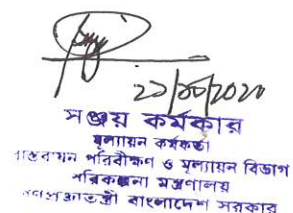 ২১/১০/2020
সঞ্জয় কর্মকার
মূল্যায়ন কর্মকর্তা
বাস্তবায়ন পরিবীক্ষণ ও মূল্যায়ন বিভাগ
পরিকল্পনা মন্ত্রণালয়
গণপ্রজাতন্ত্রী বাংলাদেশ সরকার